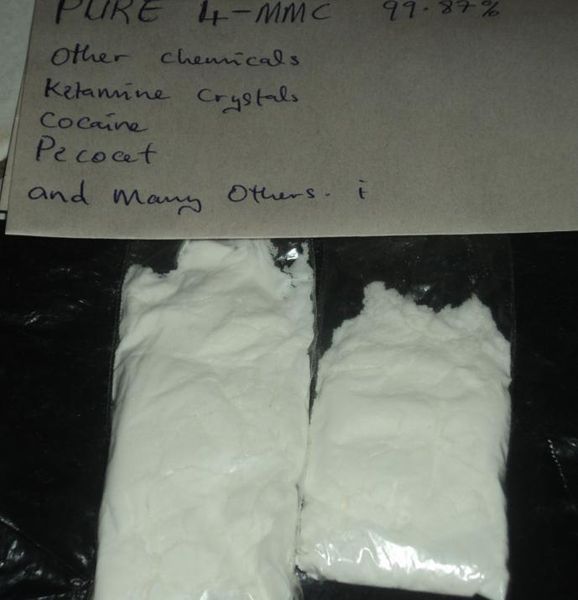 PURE 4-MMC 99.87%
Other chemicals
Ketamine crystals
Cocaine
Pecocet
and Many Others. i